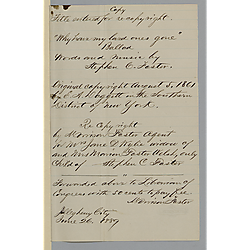 Copy
"Title entered for re copyright.
"Why have my loved ones gone"
Ballad
Words and music by
Stephen C. Foster.
Original copyright August 5, 1861
by S. A. Daggett in the Southern
District of New York.
Re Copyright
by Morrison Foster Agent
for Mrs Jane D. Wiley widow of
and Mrs Marion Foster Welsh, only
Child of — Stephen C. Foster
Forwarded above to Librarian of
Congress with 50 cents to pay fees.
Morrison Foster
Allegheny City
June 26, 1889